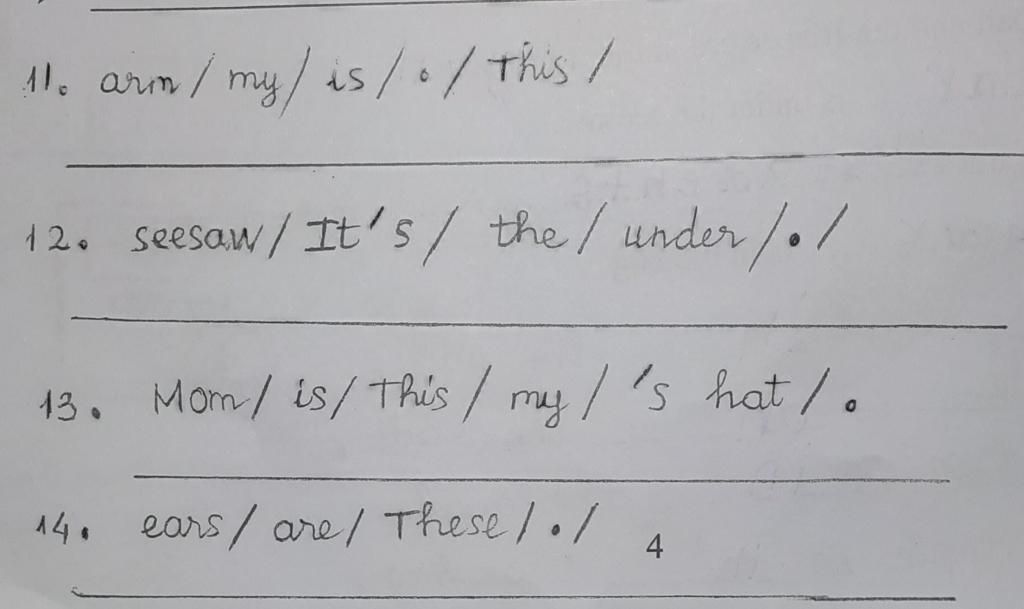 11. arm / my / is / . / This /
12. seesaw / It's / the / under / . /
13. Mom / is / This / my / 's hat / .
14. ears / are / These / . /
4